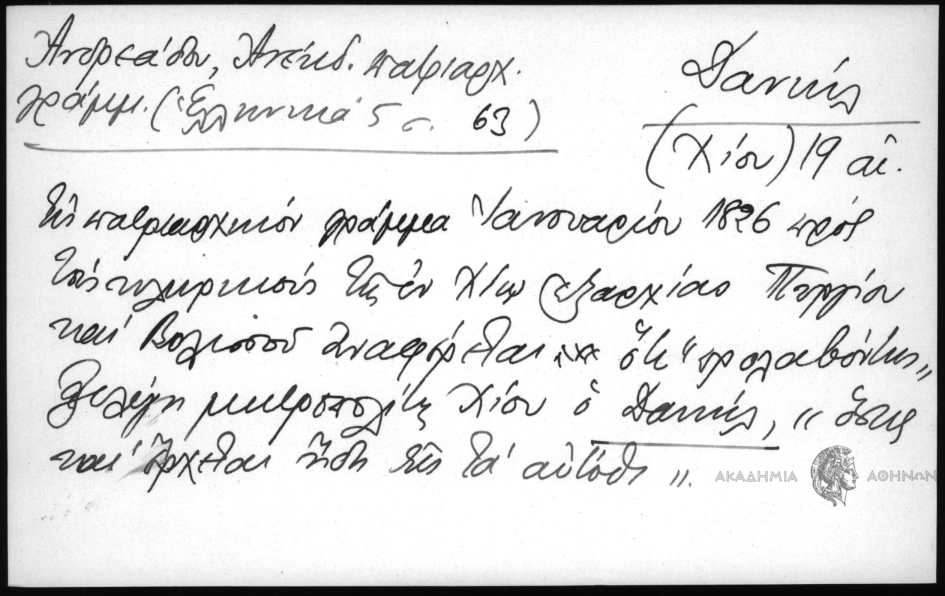 Ἀνδρεάδου, Ἀνέκδ. πατριαρχ.
γράμμ. (Ἑλληνικά 5 σ. 63)
Δανιήλ
(Χίου) 19 αἰ.
Εἰς πατριαρχικόν γράμμα Ἰανουαρίου 1826 πρός
τούς κληρικούς τῆς ἐν Χίῳ ἐξαρχίας Πυργίου
καί Βολισσοῦ ἀναφέρεται ὅτι "προλαβόντως"
ἐξελέγη μητροπολίτης Χίου ὁ Δανιήλ, "ὅστις
καί ἔρχεται ἤδη εἰς τά αὐτόθι".
ΑΚΑΔΗΜΙΑ ΑΘΗΝΩΝ